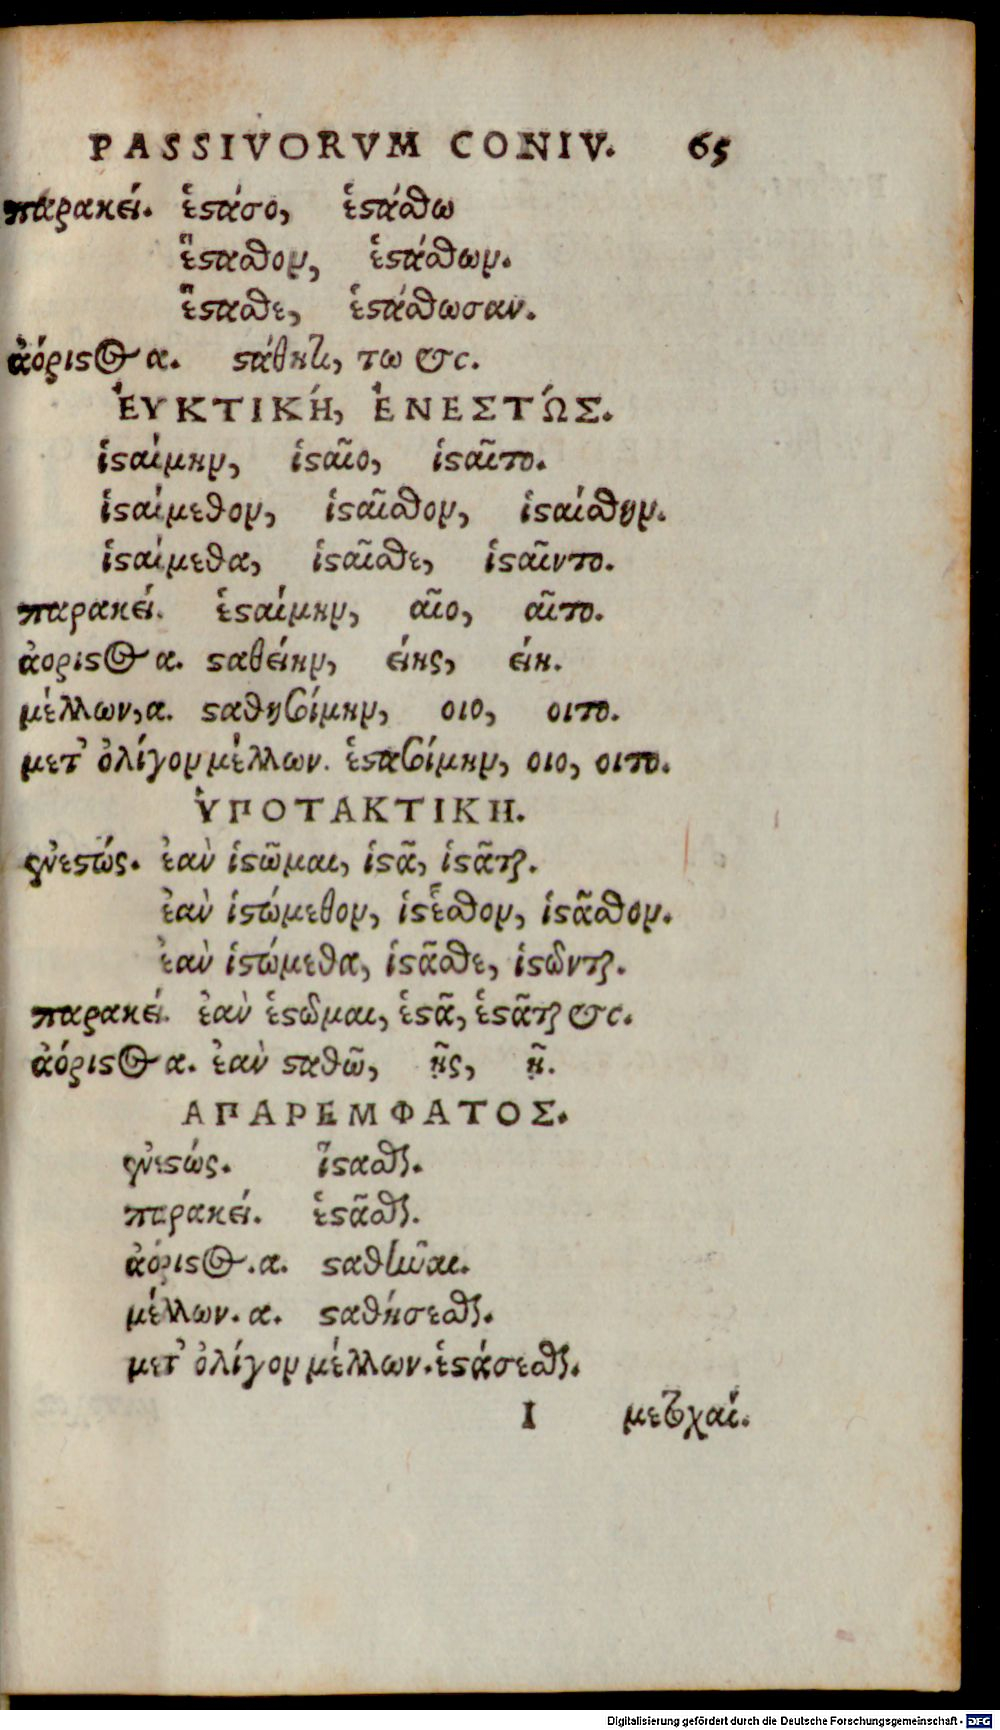 PASSIVORVM CONIV. 65
παρακεί. ἑστάσο, ἑστάσθω
ἕστασθον, ἑστάσθων.
ἕστασθε, ἑστάσθωσαν.
ἀόριστος α. στάθητι, τω &c.
ἘΥΚΤΙΚΉ, ἘΝΕΣΤΏΣ.
ἱσταίμην, ἱσταῖο, ἱσταῖτο.
ἱσταίμεθον, ἱσταῖσθον, ἱσταίσθην.
ἱσταίμεθα, ἱσταῖσθε, ἱσταῖντο.
παρακεί. ἑσταίμην, αῖο, αῖτο.
ἀοριστος α. σταθείην, είης, είη.
μέλλων, α. σταθησοίμην, οιο, οιτο.
μετ᾽ ὀλίγον μέλλων. ἑστασοίμην, οιο, οιτο.
ὙΠΟΤΑΚΤΙΚΗ.
ἐνεστώς. ἐὰν ἱστῶμαι, ἱστᾶ, ἱστᾶται.
ἐὰν ἱστώμεθον, ἱστᾶσθον, ἱστᾶσθον.
ἐὰν ἱστώμεθα, ἱστᾶσθε, ἱστῶνται.
παρακεί. ἐὰν ἑστῶμαι, ἑστᾶ, ἑστᾶται &c.
ἀόριστος α. ἐὰν σταθῶ, ῇς, ῇ.
ΑΠΑΡΕΜΦΑΤΟΣ.
ἐνεστώς. ἵστασθαι.
παρακεί. ἑστᾶσθαι.
ἀόριστος. α. σταθῆναι.
μέλλων. α. σταθήσεσθαι.
μετ᾽ ὀλίγον μέλλων. ἑστάσεσθαι.
I μετοχαί.